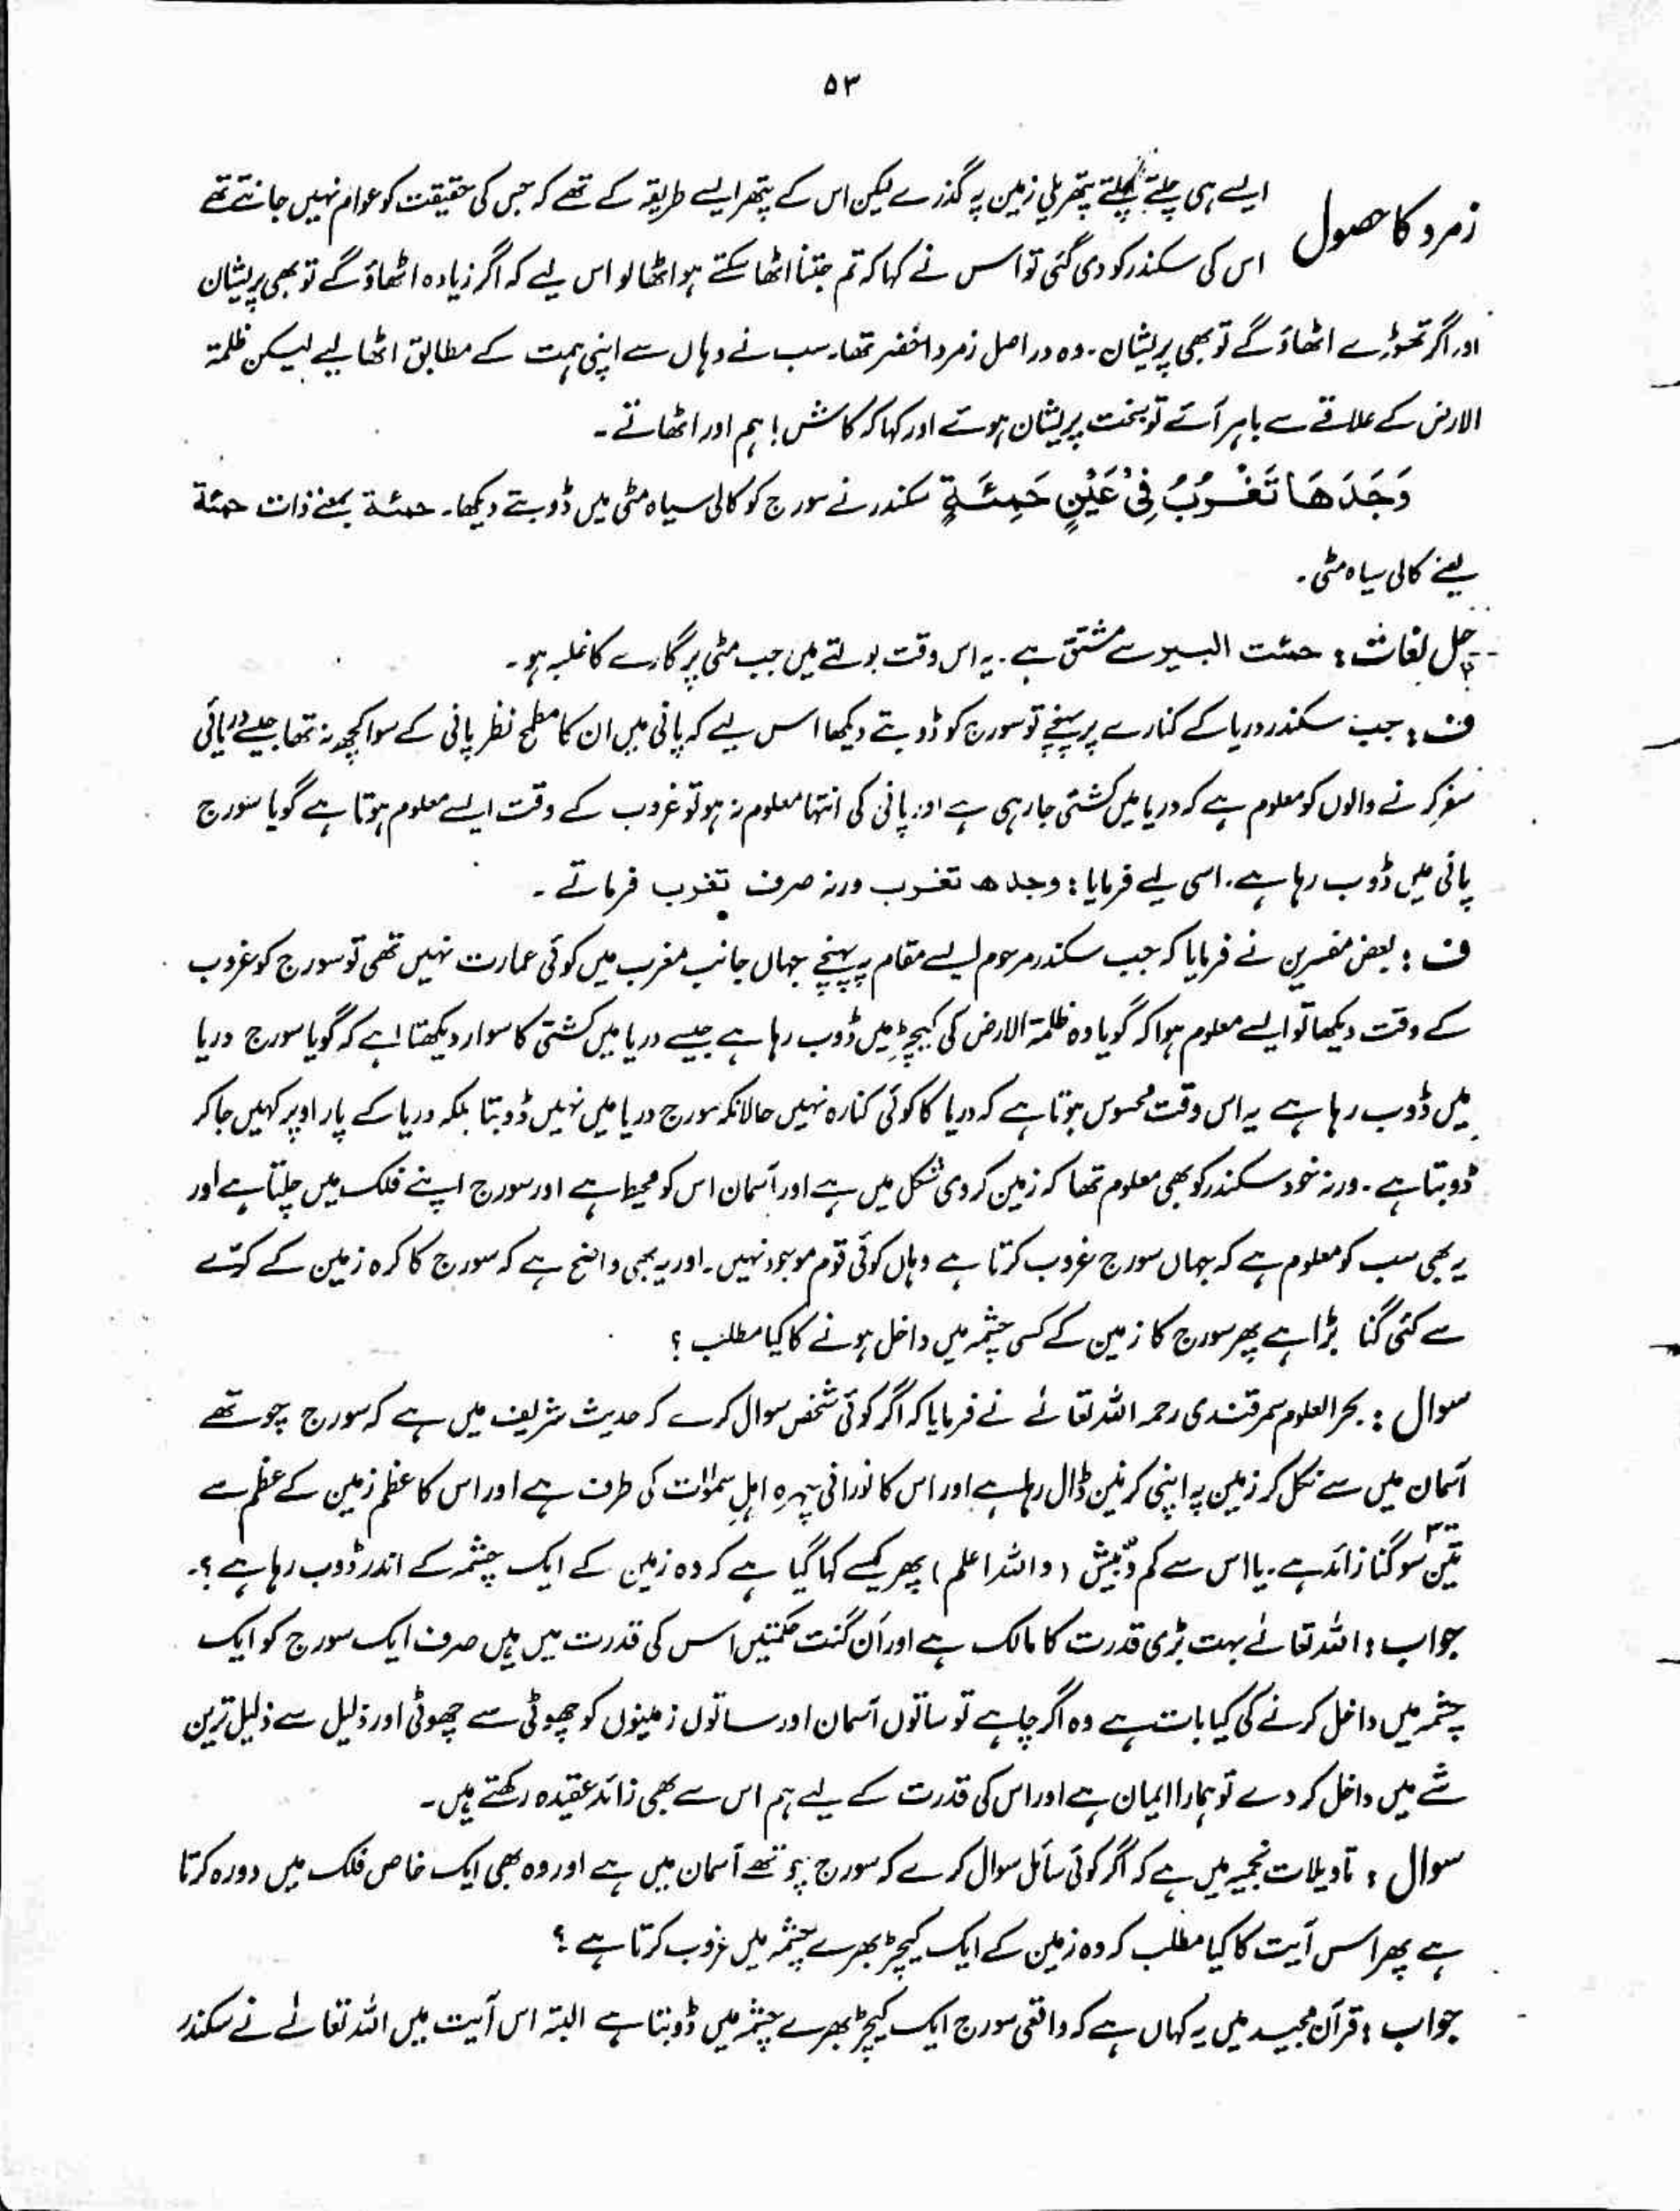 ۵۳
زمرد کا حصول
ایسے ہی چلتے چلتے پتھریلی زمین پہ گذرے لیکن اس کے پتھر ایسے طریقہ کے تھے کہ جس کی حقیقت کو عوام نہیں جانتے تھے
اس کی سکندر کو دی گئی تو اس نے کہا کہ تم جتنا اٹھا سکتے ہو اٹھا لو اس لیے کہ اگر زیادہ اٹھاؤ گے تو بھی پریشان
اور اگر تھوڑے اٹھاؤ گے تو بھی پریشان۔ وہ در اصل زمرد اخضر تھا۔ سب نے وہاں سے اپنی ہمت کے مطابق اٹھا لیے لیکن ظلمۃ
الارض کے علاقے سے باہر آئے تو سخت پریشان ہوئے اور کہا کہ کاش! ہم اور اٹھاتے۔
وَجَدَهَا تَغْرُبُ فِیْ عَیْنٍ حَمِئَةٍ سکندر نے سورج کو کالی سیاہ مٹی میں ڈوبتے دیکھا۔ حمئة بمعنے ذات حمئة
یعنے کالی سیاہ مٹی۔
حل لغات : حمئت البیر سے مشتق ہے۔ یہ اس وقت بولتے ہیں جب مٹی پر گارے کا غلبہ ہو۔
ف : جب سکندر دریا کے کنارے پر پہنچے تو سورج کو ڈوبتے دیکھا اس لیے کہ پانی میں ان کا مطمح نظر پانی کے سوا کچھ نہ تھا جیسے دریائی
سفر کرنے والوں کو معلوم ہے کہ دریا میں کشتی جا رہی ہے اور پانی کی انتہا معلوم نہ ہو تو غروب کے وقت ایسے معلوم ہوتا ہے گویا سورج
پانی میں ڈوب رہا ہے۔ اسی لیے فرمایا : وجدھ تغرب ورنہ صرف تغرب فرماتے۔
ف : بعض مفسرین نے فرمایا کہ جب سکندر مرحوم ایسے مقام پہ پہنچے جہاں جانب مغرب میں کوئی عمارت نہیں تھی تو سورج کو غروب
کے وقت دیکھا تو ایسے معلوم ہوا کہ گویا وہ ظلمۃ الارض کی کیچڑ میں ڈوب رہا ہے جیسے دریا میں کشتی کا سوار دیکھتا ہے کہ گویا سورج دریا
میں ڈوب رہا ہے یہ اس وقت محسوس ہوتا ہے کہ دریا کا کوئی کنارہ نہیں حالانکہ سورج دریا میں نہیں ڈوبتا بلکہ دریا کے پار اوپر کہیں جا کر
ڈوبتا ہے۔ ورنہ خود سکندر کو بھی معلوم تھا کہ زمین کروی شکل میں ہے اور آسمان اس کو محیط ہے اور سورج اپنے فلک میں چلتا ہے اور
یہ بھی سب کو معلوم ہے کہ جہاں سورج غروب کرتا ہے وہاں کوئی قوم موجود نہیں۔ اور یہ بھی واضح ہے کہ سورج کا کرہ زمین کے کرّے
سے کئی گنا بڑا ہے پھر سورج کا زمین کے کسی چشمہ میں داخل ہونے کا کیا مطلب ؟
سوال : بحر العلوم سمرقندی رحمہ اللہ تعالٰے نے فرمایا کہ اگر کوئی شخص سوال کرے کہ حدیث شریف میں ہے کہ سورج چوتھے
آسمان میں سے نکل کر زمین پہ اپنی کرنیں ڈال رہا ہے اور اس کا نورانی چہرہ اہلِ سمٰوٰت کی طرف ہے اور اس کا عظم زمین کے عظم سے
تین سو گنا زائد ہے۔ یا اس سے کم و بیش (واللہ اعلم) پھر کیسے کہا گیا ہے کہ وہ زمین کے ایک چشمہ کے اندر ڈوب رہا ہے ؟۔
جواب : اللہ تعالٰے بہت بڑی قدرت کا مالک ہے اور ان گنت حکمتیں اس کی قدرت میں ہیں صرف ایک سورج کو ایک
چشمہ میں داخل کرنے کی کیا بات ہے وہ اگر چاہے تو ساتوں آسمان اور ساتوں زمینوں کو چھوٹی سے چھوٹی اور ذلیل سے ذلیل ترین
شے میں داخل کر دے تو ہمارا ایمان ہے اور اس کی قدرت کے لیے ہم اس سے بھی زائد عقیدہ رکھتے ہیں۔
سوال : تاویلات نجمیہ میں ہے کہ اگر کوئی سائل سوال کرے کہ سورج چوتھے آسمان میں ہے اور وہ بھی ایک خاص فلک میں دورہ کرتا
ہے پھر اس آیت کا کیا مطلب کہ وہ زمین کے ایک کیچڑ بھرے چشمہ میں غروب کرتا ہے ؟
جواب : قرآن مجید میں یہ کہاں ہے کہ واقعی سورج ایک کیچڑ بھرے چشمہ میں ڈوبتا ہے البتہ اس آیت میں اللہ تعالٰے نے سکندر